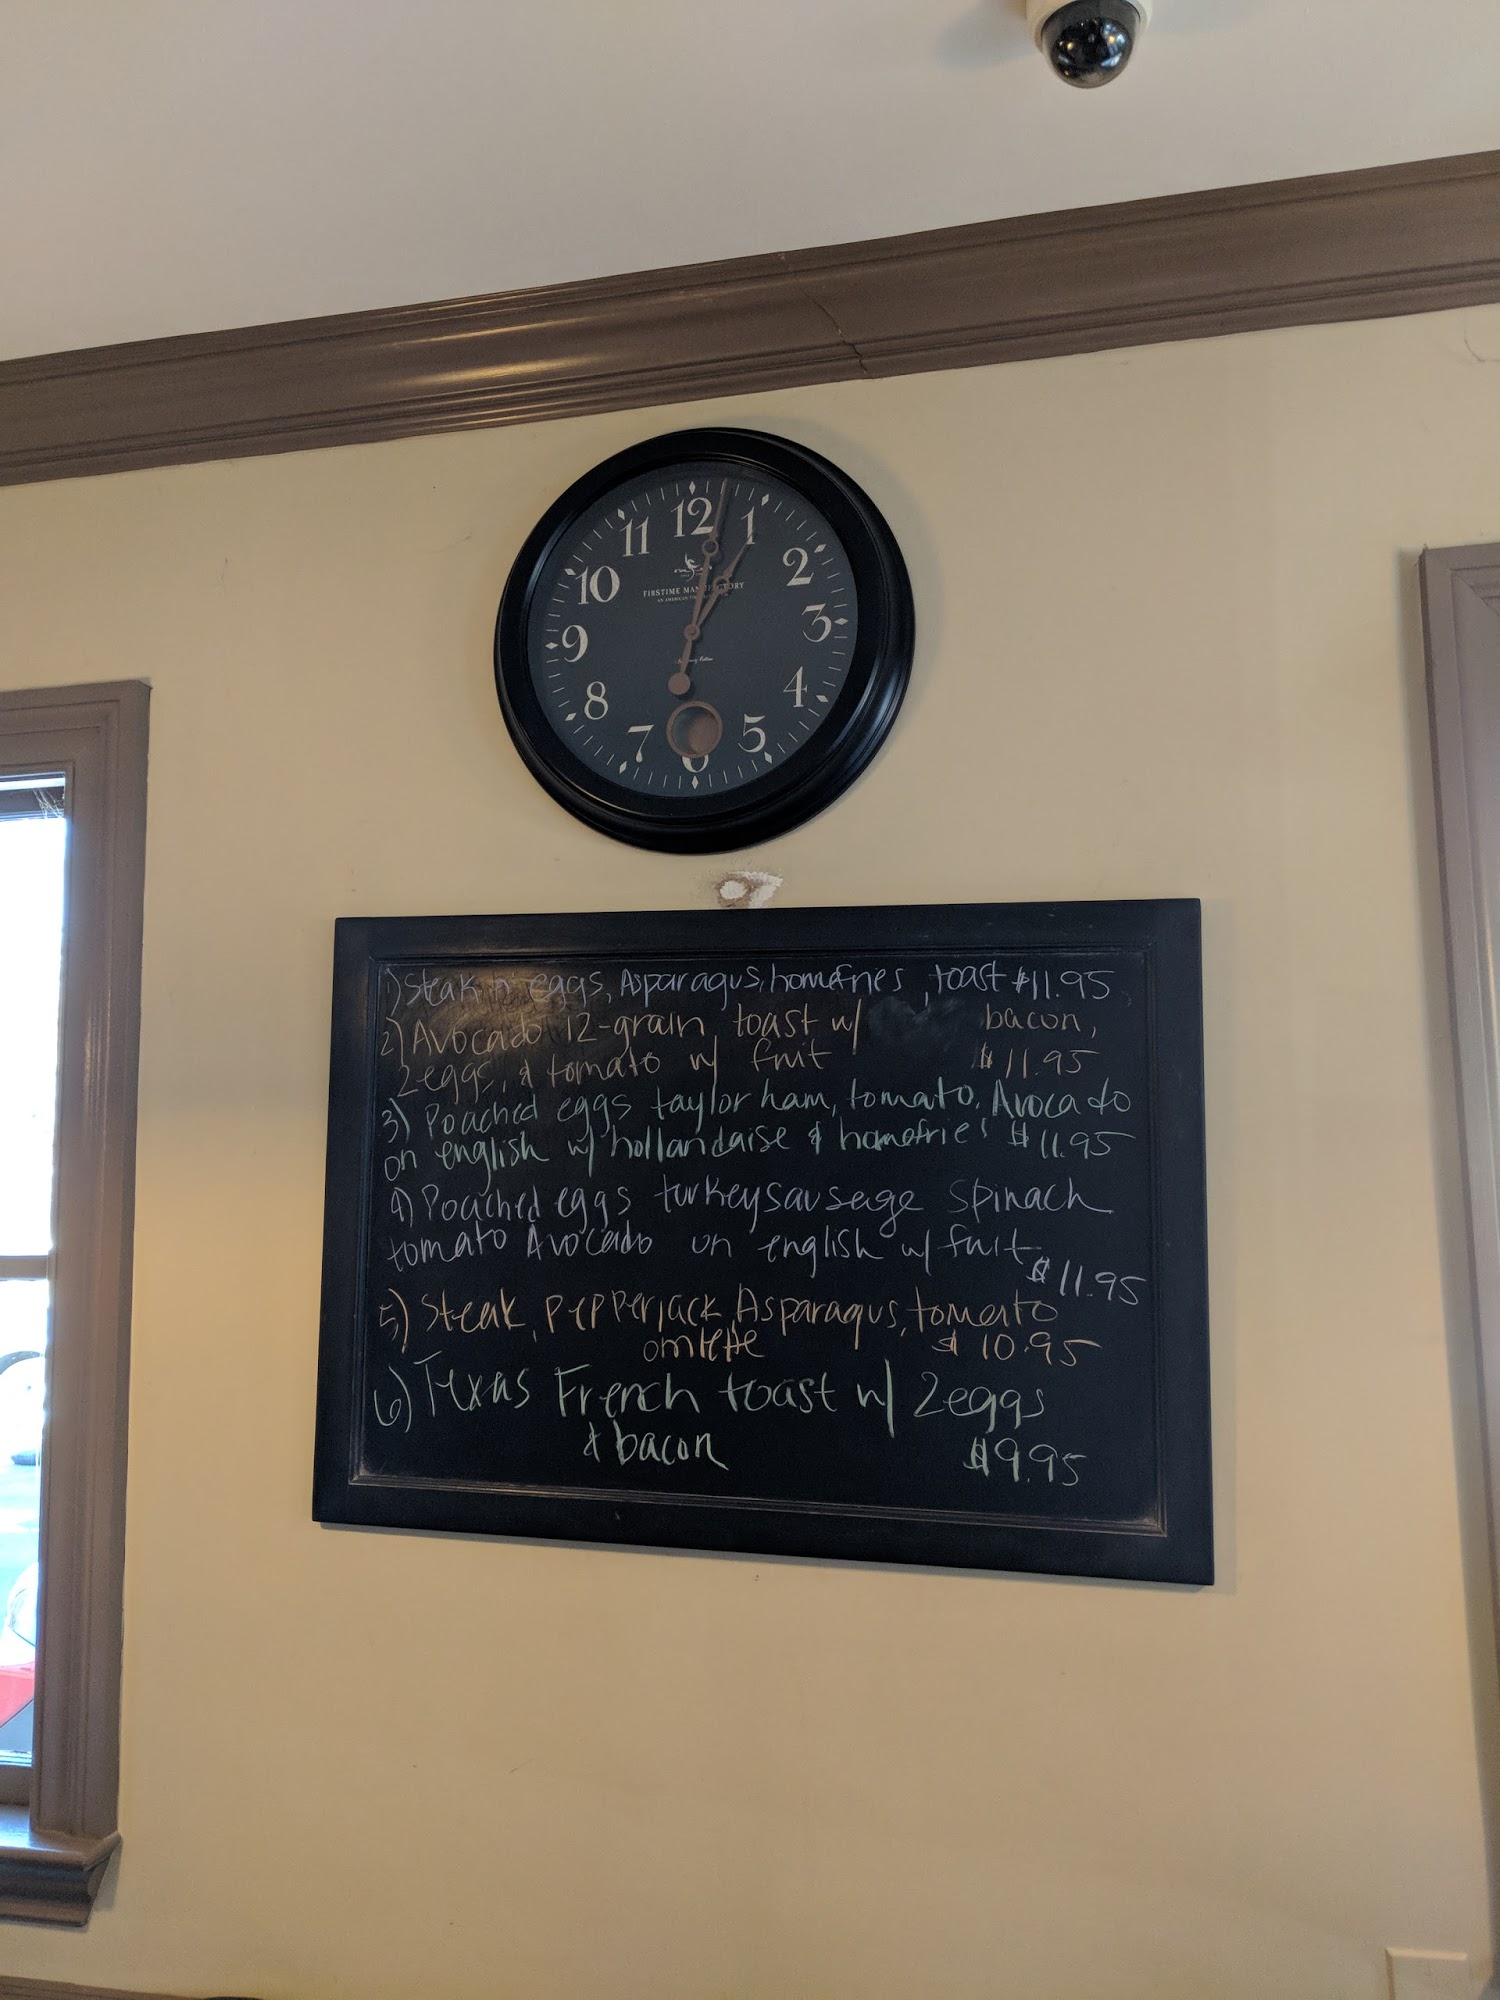 12
11
1
10
2
9
3
8
4
7
5
6
FIRSTIME MANUFACTORY
1) Steak n' eggs, Asparagus, homefries, toast $11.95
2) Avocado 12-grain toast w/ bacon,
2 eggs, & tomato w/ fruit $11.95
3) Poached eggs taylor ham, tomato, Avocado
on english w/ hollandaise & homefries $11.95
4) Poached eggs turkey sausage spinach
tomato Avocado on english w/ fruit
$11.95
5) Steak, pepperjack, Asparagus, tomato
omlette $10.95
6) Texas French toast w/ 2 eggs
& bacon $9.95